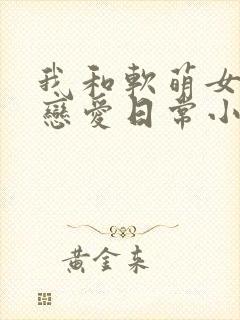 我和軟萌女
戀愛日常小
黃金來